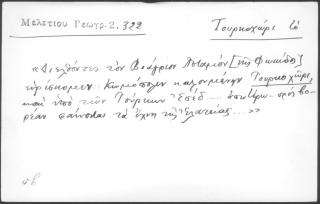 Μελετίου Γεωγρ. 2, 322
Τουρκοχώρι
«Διελθόντες τὸν Ποταμὸν [τῆς Φωκίδος]
εὑρίσκομεν Κωμόπολιν καλουμένην Τουρκοχῶρι,
καὶ ὑπὸ τῶν Τούρκων Ἐσὲδ... πρὸς βο-
ρέαν φαίνονται τὰ ἴχνη τῆς Ἐλατείας...»